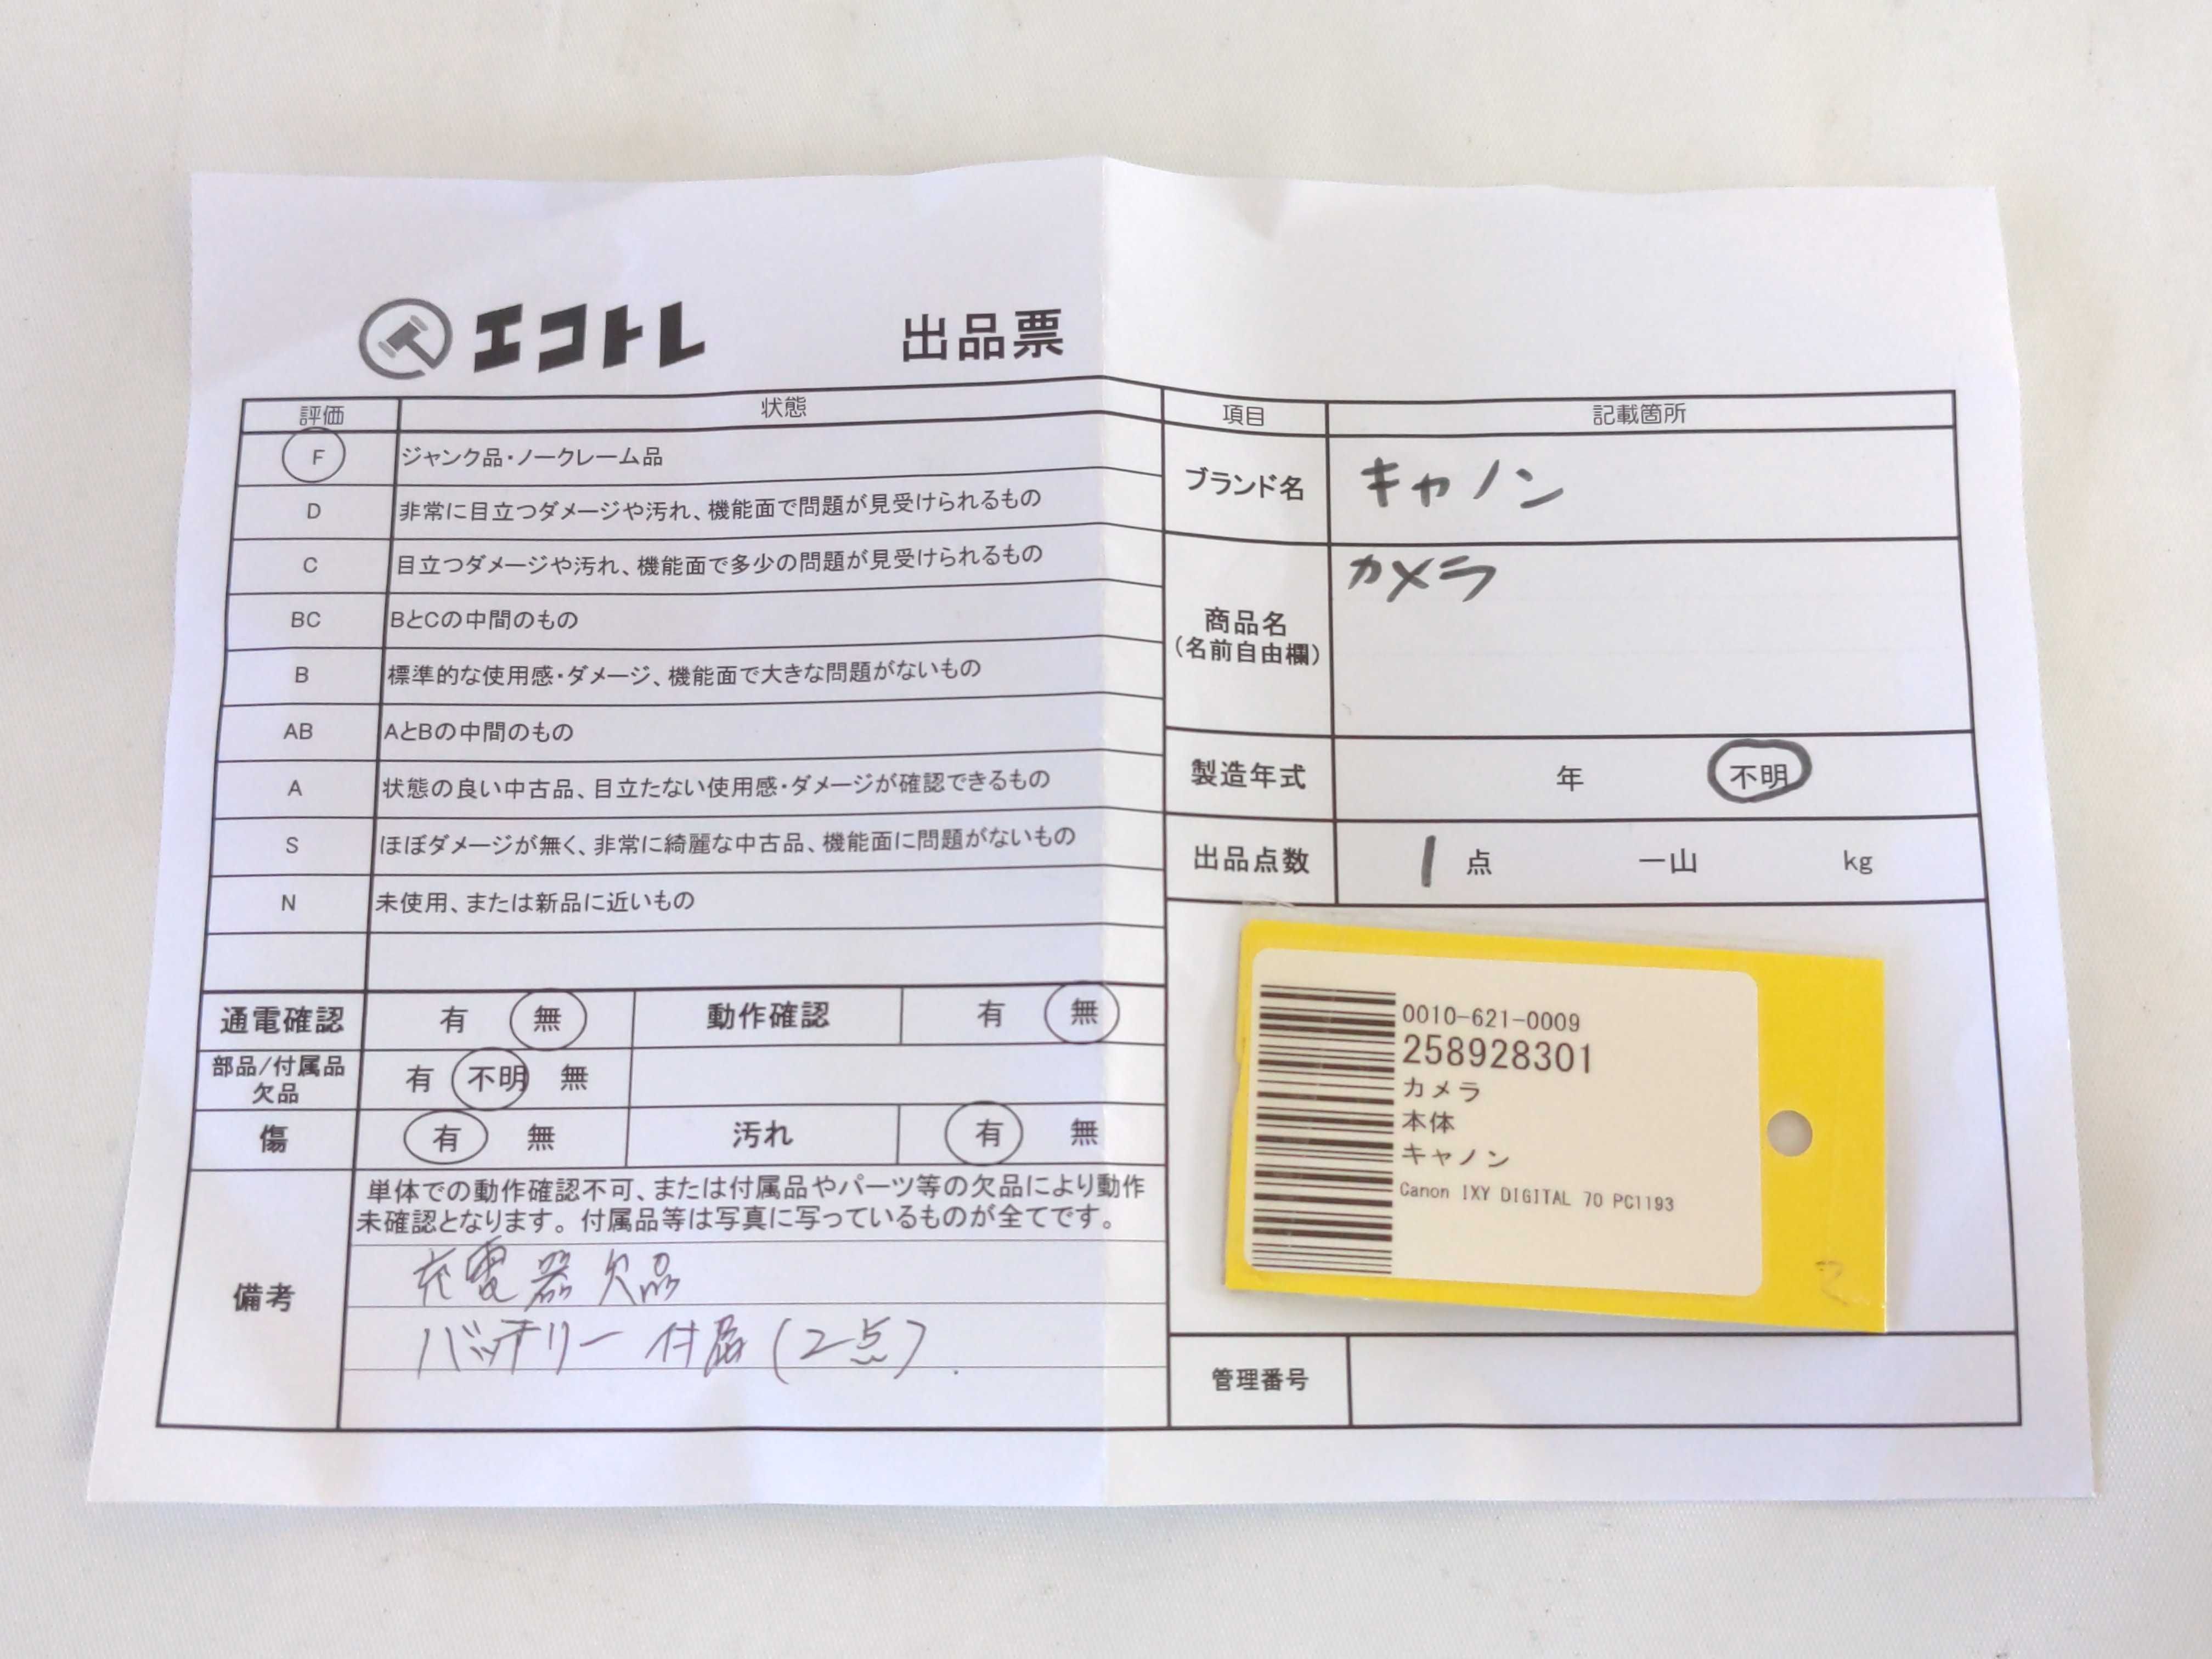 エコトレ 出品票
評価 状態
F ジャンク品・ノークレーム品
D 非常に目立つダメージや汚れ、機能面で問題が見受けられるもの
C 目立つダメージや汚れ、機能面で多少の問題が見受けられるもの
BC BとCの中間のもの
B 標準的な使用感・ダメージ、機能面で大きな問題がないもの
AB AとBの中間のもの
A 状態の良い中古品、目立たない使用感・ダメージが確認できるもの
S ほぼダメージが無く、非常に綺麗な中古品、機能面に問題がないもの
N 未使用、または新品に近いもの
通電確認 有 無 動作確認 有 無
部品/付属品
欠品
有 不明 無
傷 有 無 汚れ 有 無
備考
単体での動作確認不可、または付属品やパーツ等の欠品により動作
未確認となります。付属品等は写真に写っているものが全てです。
充電器欠品
バッテリー付属(2点).
項目 記載箇所
ブランド名 キャノン
商品名
(名前自由欄)
カメラ
製造年式 年 不明
出品点数 1点 一山 kg
0010-621-0009
258928301
カメラ
本体
キャノン
Canon IXY DIGITAL 70 PC1193
2
管理番号